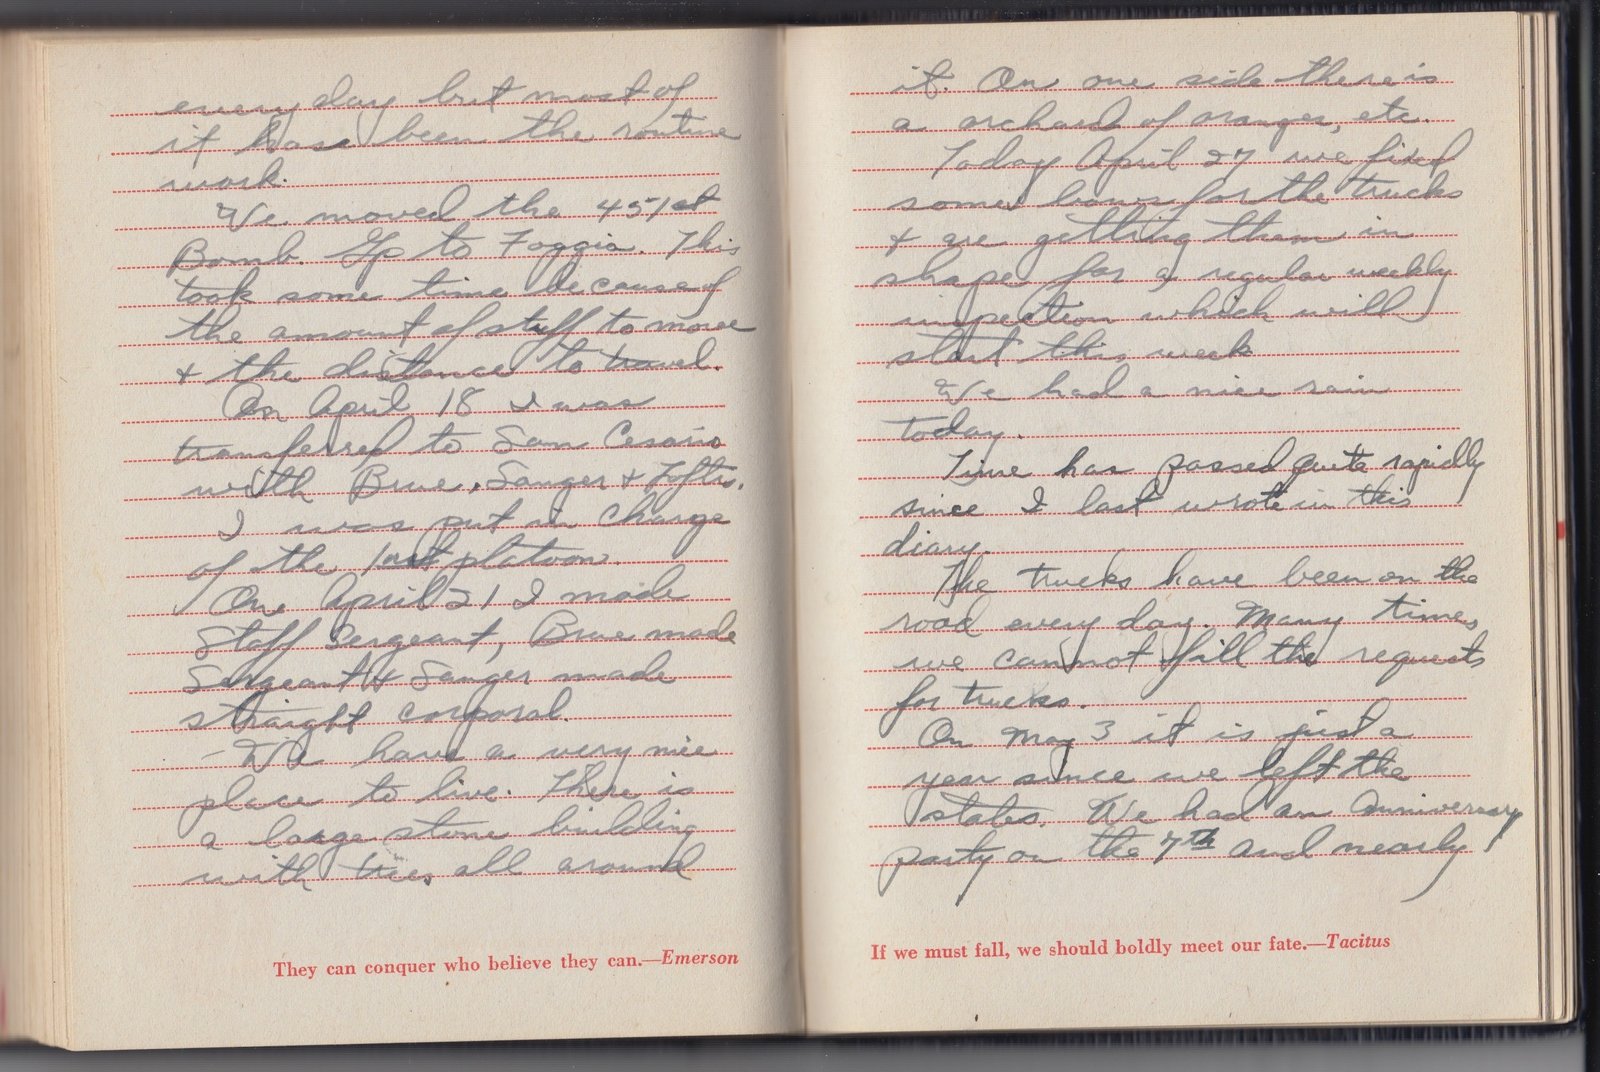 every day but most of
it has been the routine
work.
We moved the 451st
Bomb. Gp to Foggia. This
took some time because of
the amount of stuff to move
& the distance to travel.
On April 18 I was
transferred to San Cesario
with Brue, Sanger &
I was put in charge
of the 1st platoon.
On April 21 I made
Staff Sergeant, Brue made
Sergeant & Sanger made
straight corporal.
- We have a very nice
place to live. There is
a large stone building
with trees all around
it. On one side there is
a orchard of oranges, etc.
Today April 27 we fixed
some bows for the trucks
& are getting them in
shape for a regular weekly
inspection which will
start this week
We had a nice rain
today.
Time has passed quite rapidly
since I last wrote in this
diary.
The trucks have been on the
road every day. Many times
we cannot fill the requests
for trucks.
On May 3 it is just a
year since we left the
states. We had an Anniversary
party on the 7th and nearly
They can conquer who believe they can.—Emerson
If we must fall, we should boldly meet our fate.—Tacitus